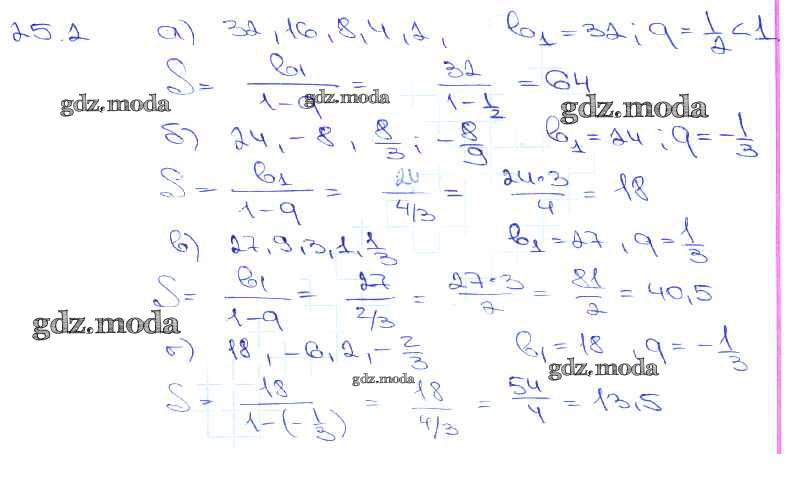 25.2 а) 32, 16, 8, 4, 2, b₁ = 32; q = 1/2 < 1
S = b₁/(1-q) = 32/(1-1/2) = 64
gdz.moda gdz.moda gdz.moda
б) 24, -8, 8/3; -8/9 b₁ = 24; q = -1/3
S = b₁/(1-q) = 24/(4/3) = 24·3/4 = 18
в) 27, 9, 3, 1, 1/3 b₁ = 27, q = 1/3
S = b₁/(1-q) = 27/(2/3) = 27·3/2 = 81/2 = 40,5
gdz.moda
г) 18, -6, 2, -2/3 b₁ = 18, q = -1/3
gdz.moda gdz.moda
S = 18/(1-(-1/3)) = 18/(4/3) = 54/4 = 13,5